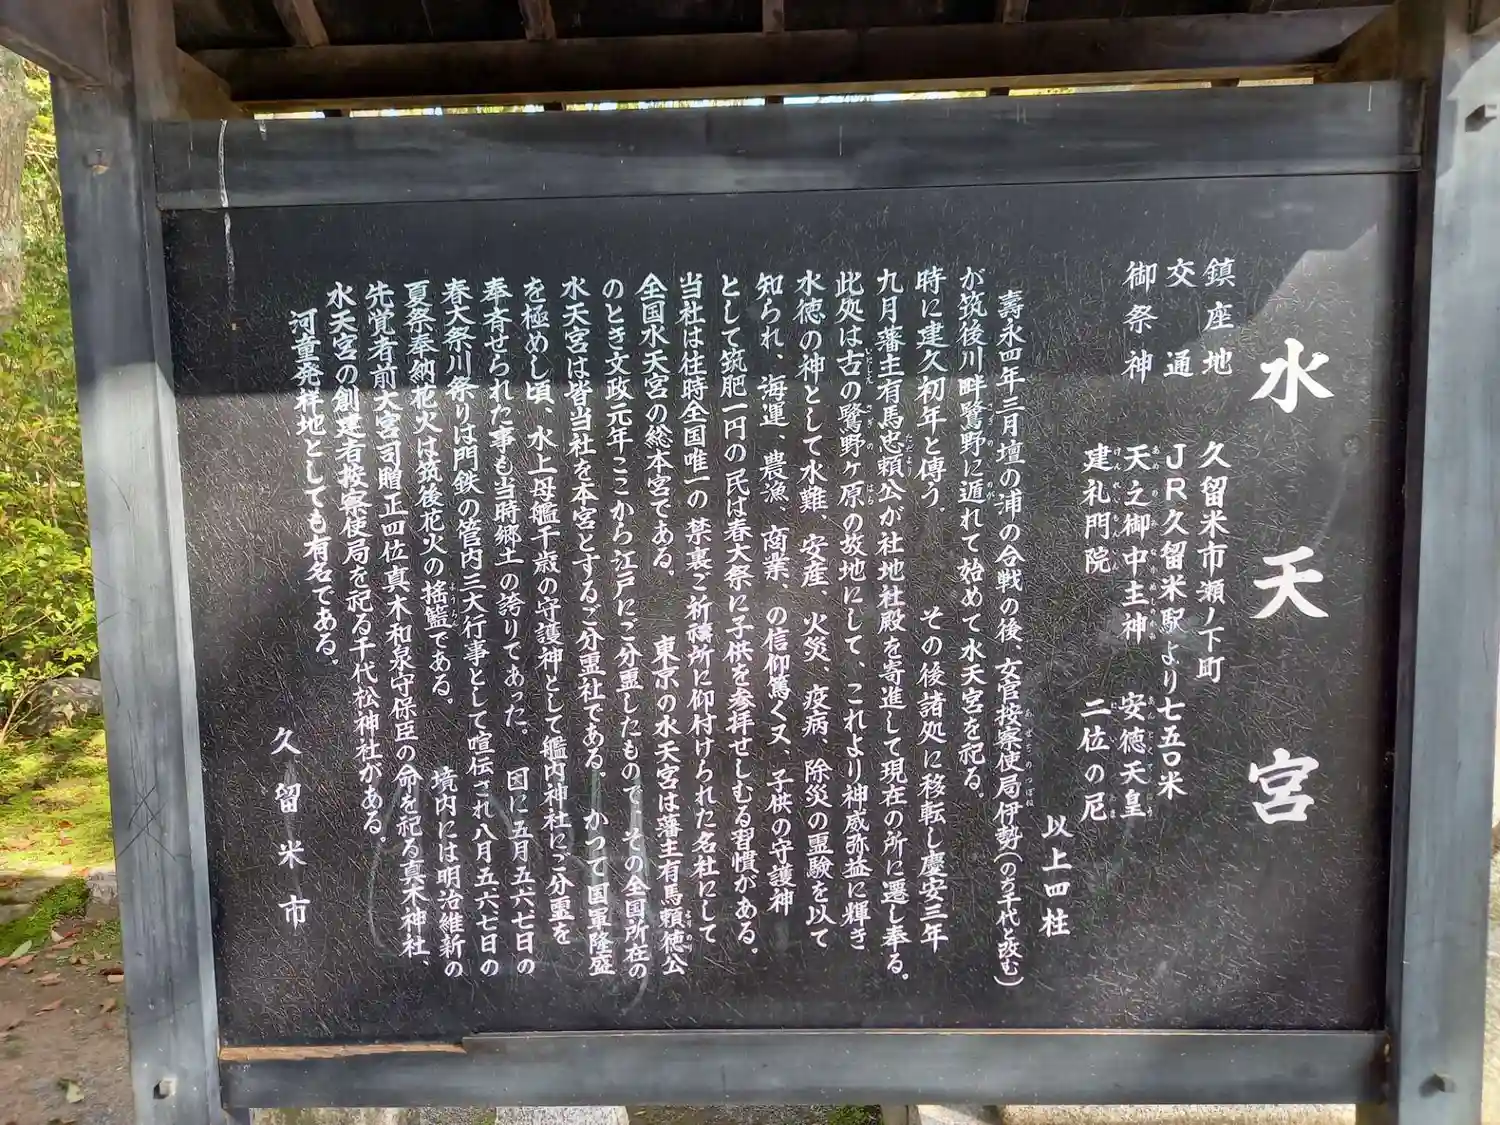 水天宮
鎮座地　久留米市瀬ノ下町
交通　JR久留米駅より七五〇米
御祭神　天之御中主神　安徳天皇
建礼門院　二位の尼
以上四柱
壽永四年三月壇の浦の合戦の後、女官按察使局伊勢(のち千代と改む)
が筑後川畔鷺野に遁れて始めて水天宮を祀る。
時に建久初年と傳う。　その後諸処に移転し慶安三年
九月藩主有馬忠頼公が社地社殿を寄進して現在の所に遷し奉る。
此処は古の鷺野ヶ原の故地にして、これより神威弥益に輝き
水徳の神として水難、安産、火災、疫病、除災の霊験を以て
知られ、海運、農漁、商業、の信仰篤く又、子供の守護神
として筑肥一円の民は春大祭に子供を参拝せしむる習慣がある。
当社は往時全国唯一の禁裏ご祈祷所に仰付けられた名社にして
全国水天宮の総本宮である。　東京の水天宮は藩主有馬頼徳公
のとき文政元年ここから江戸にご分霊したもので、その全国所在の
水天宮は皆当社を本宮とするご分霊社である。かつて国軍隆盛
を極めし頃、水上母艦千歳の守護神として艦内神社にご分霊を
奉斉せられた事も当時郷土の誇りであった。　国に五月五六七日の
春大祭川祭りは門鉄の管内三大行事として喧伝され八月五六七日の
夏祭奉納花火は筑後花火の揺籃である。　境内には明治維新の
先覚者前大宮司贈正四位真木和泉守保臣の命を祀る真木神社、
水天宮の創建者按察使局を祀る千代松神社がある。
河童発祥地としても有名である。
久留米市